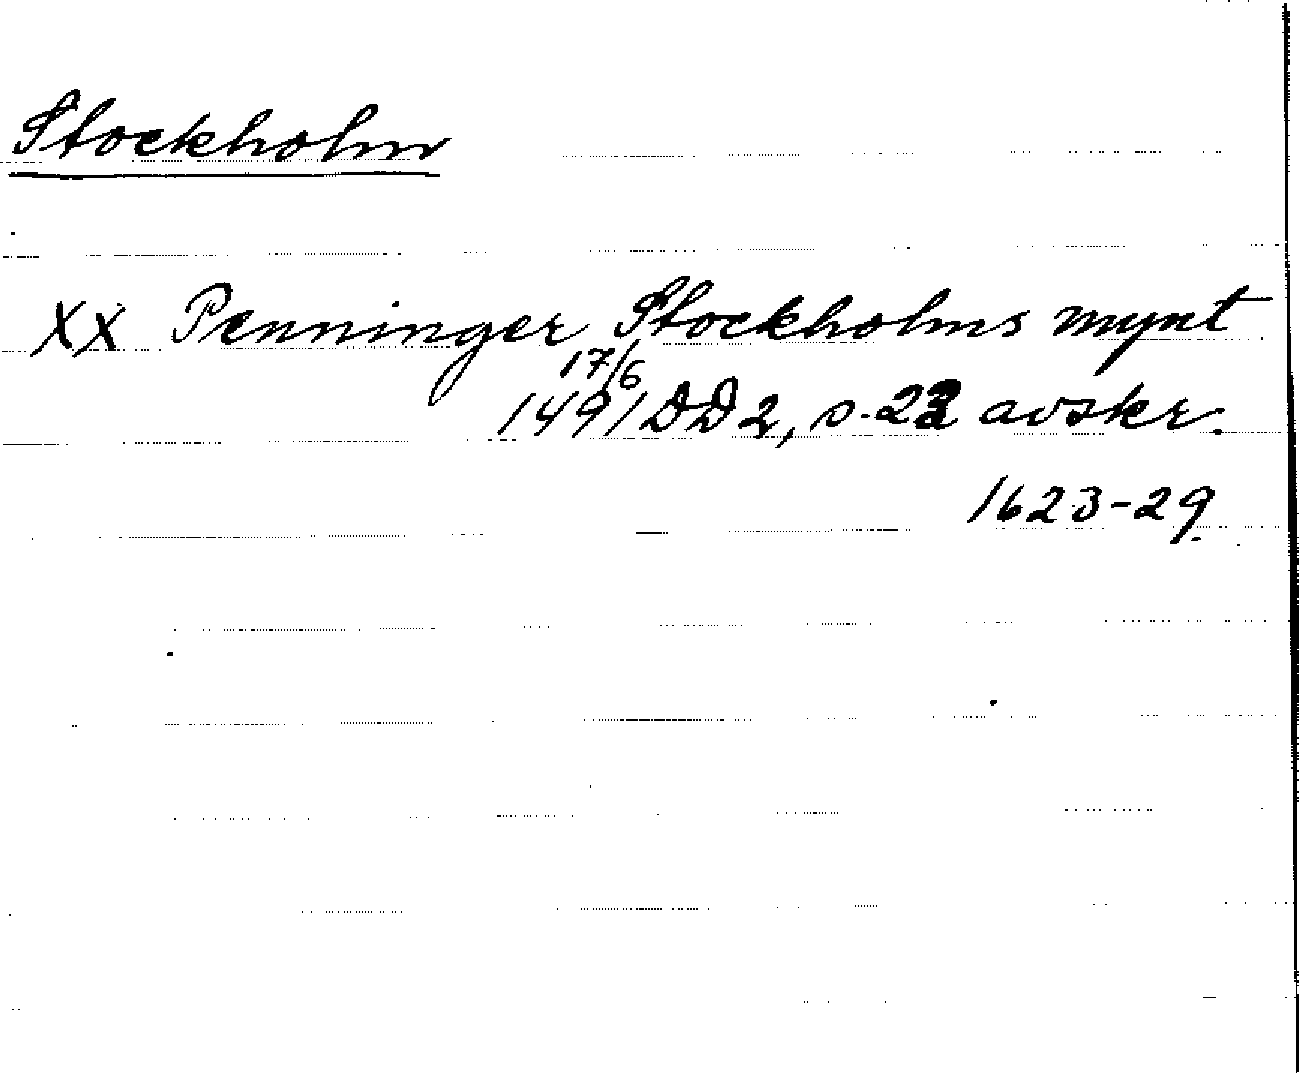 Stockholm
XX Penninger Stockholms mynt
17/6
1491 DD2, s. 22 avskr.
1623-29.